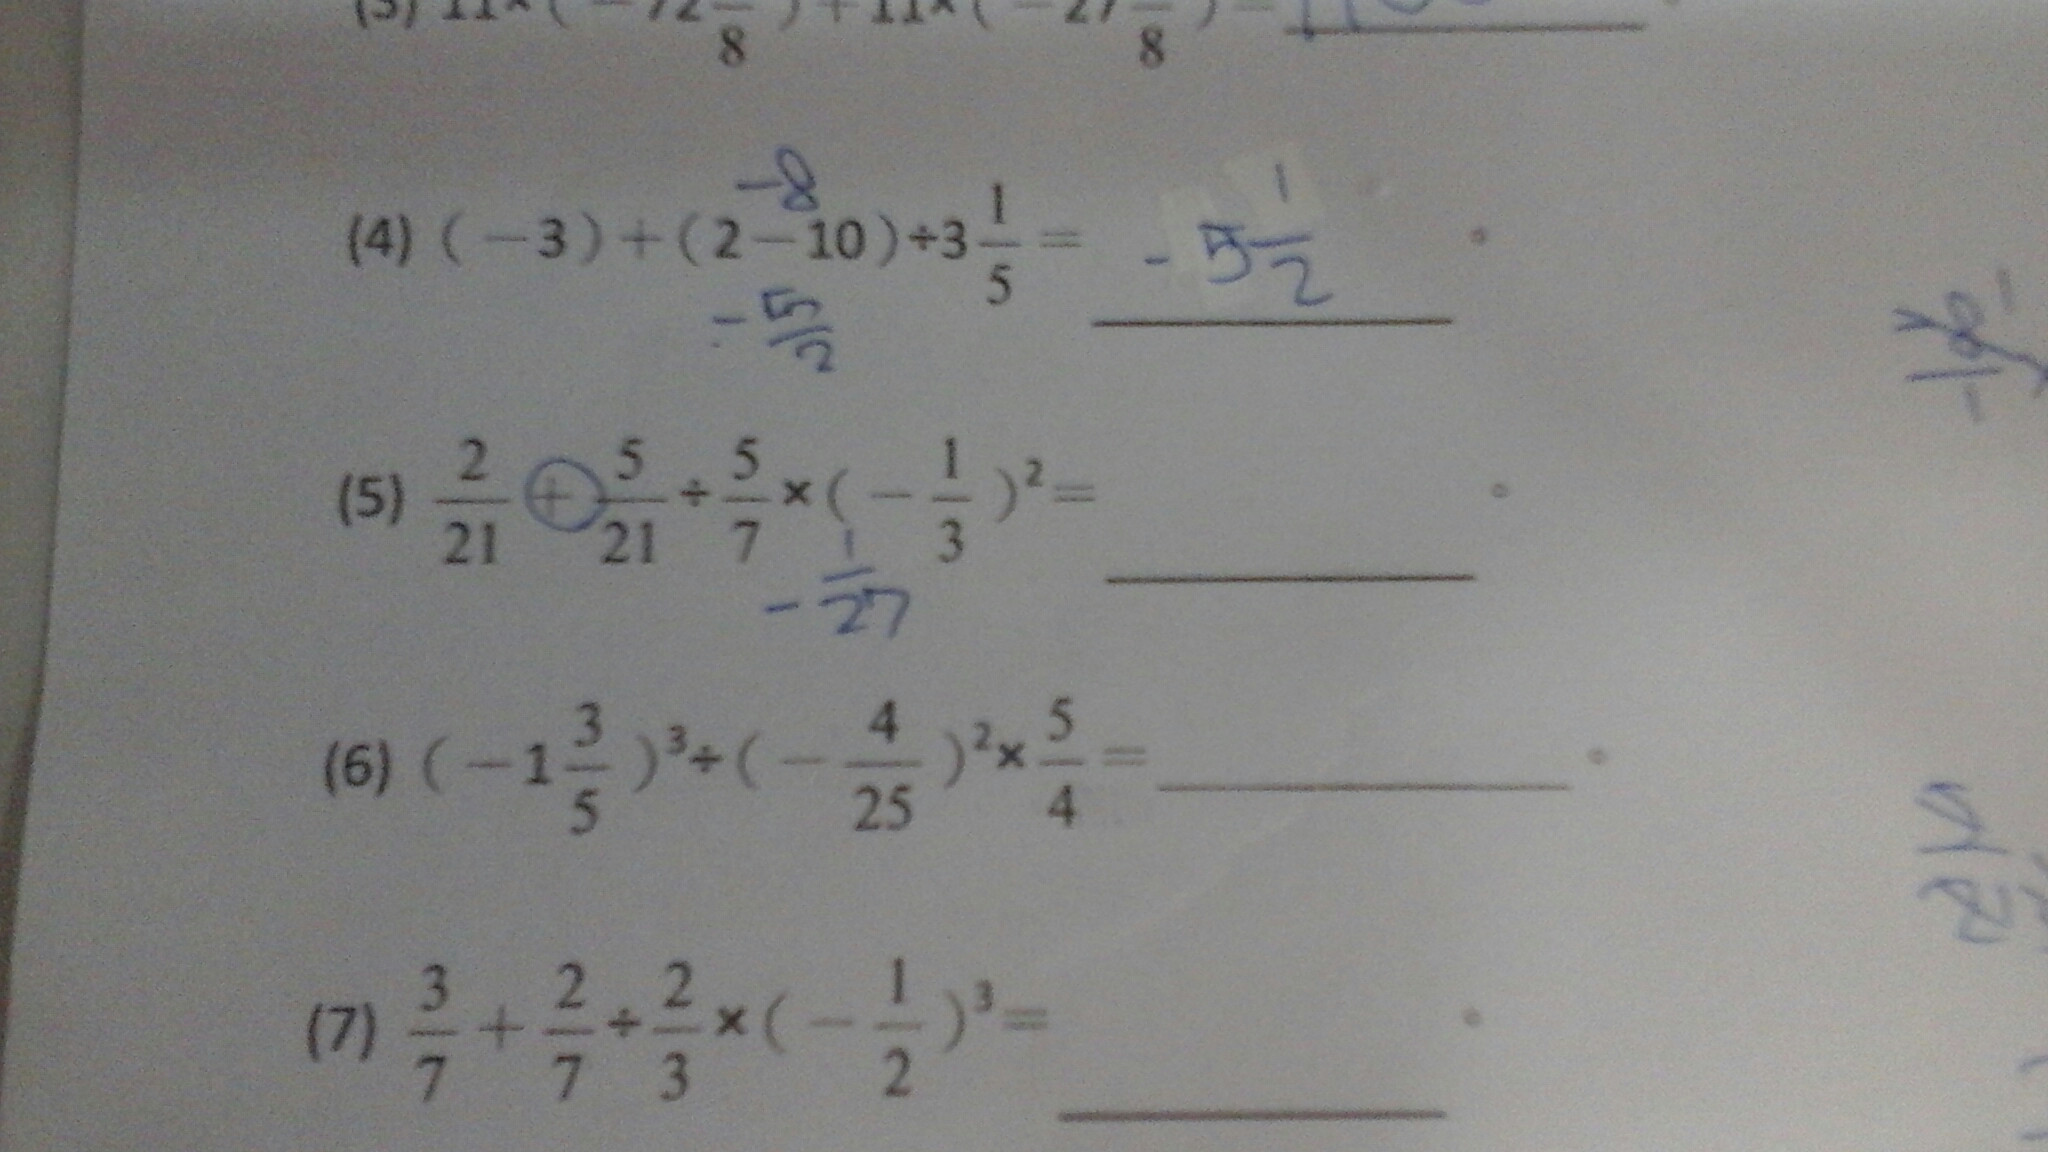 8 8
-8
(4) (−3)+(2−10)÷3 1/5= -5 1/2 。
-5/2
(5) 2/21 + 5/21 ÷ 5/7 ×(− 1/3 )²= 。
- 1/27
(6) (−1 3/5 )³÷(− 4/25 )²× 5/4 = 。
(7) 3/7 + 2/7 ÷ 2/3 ×(− 1/2 )³= 。